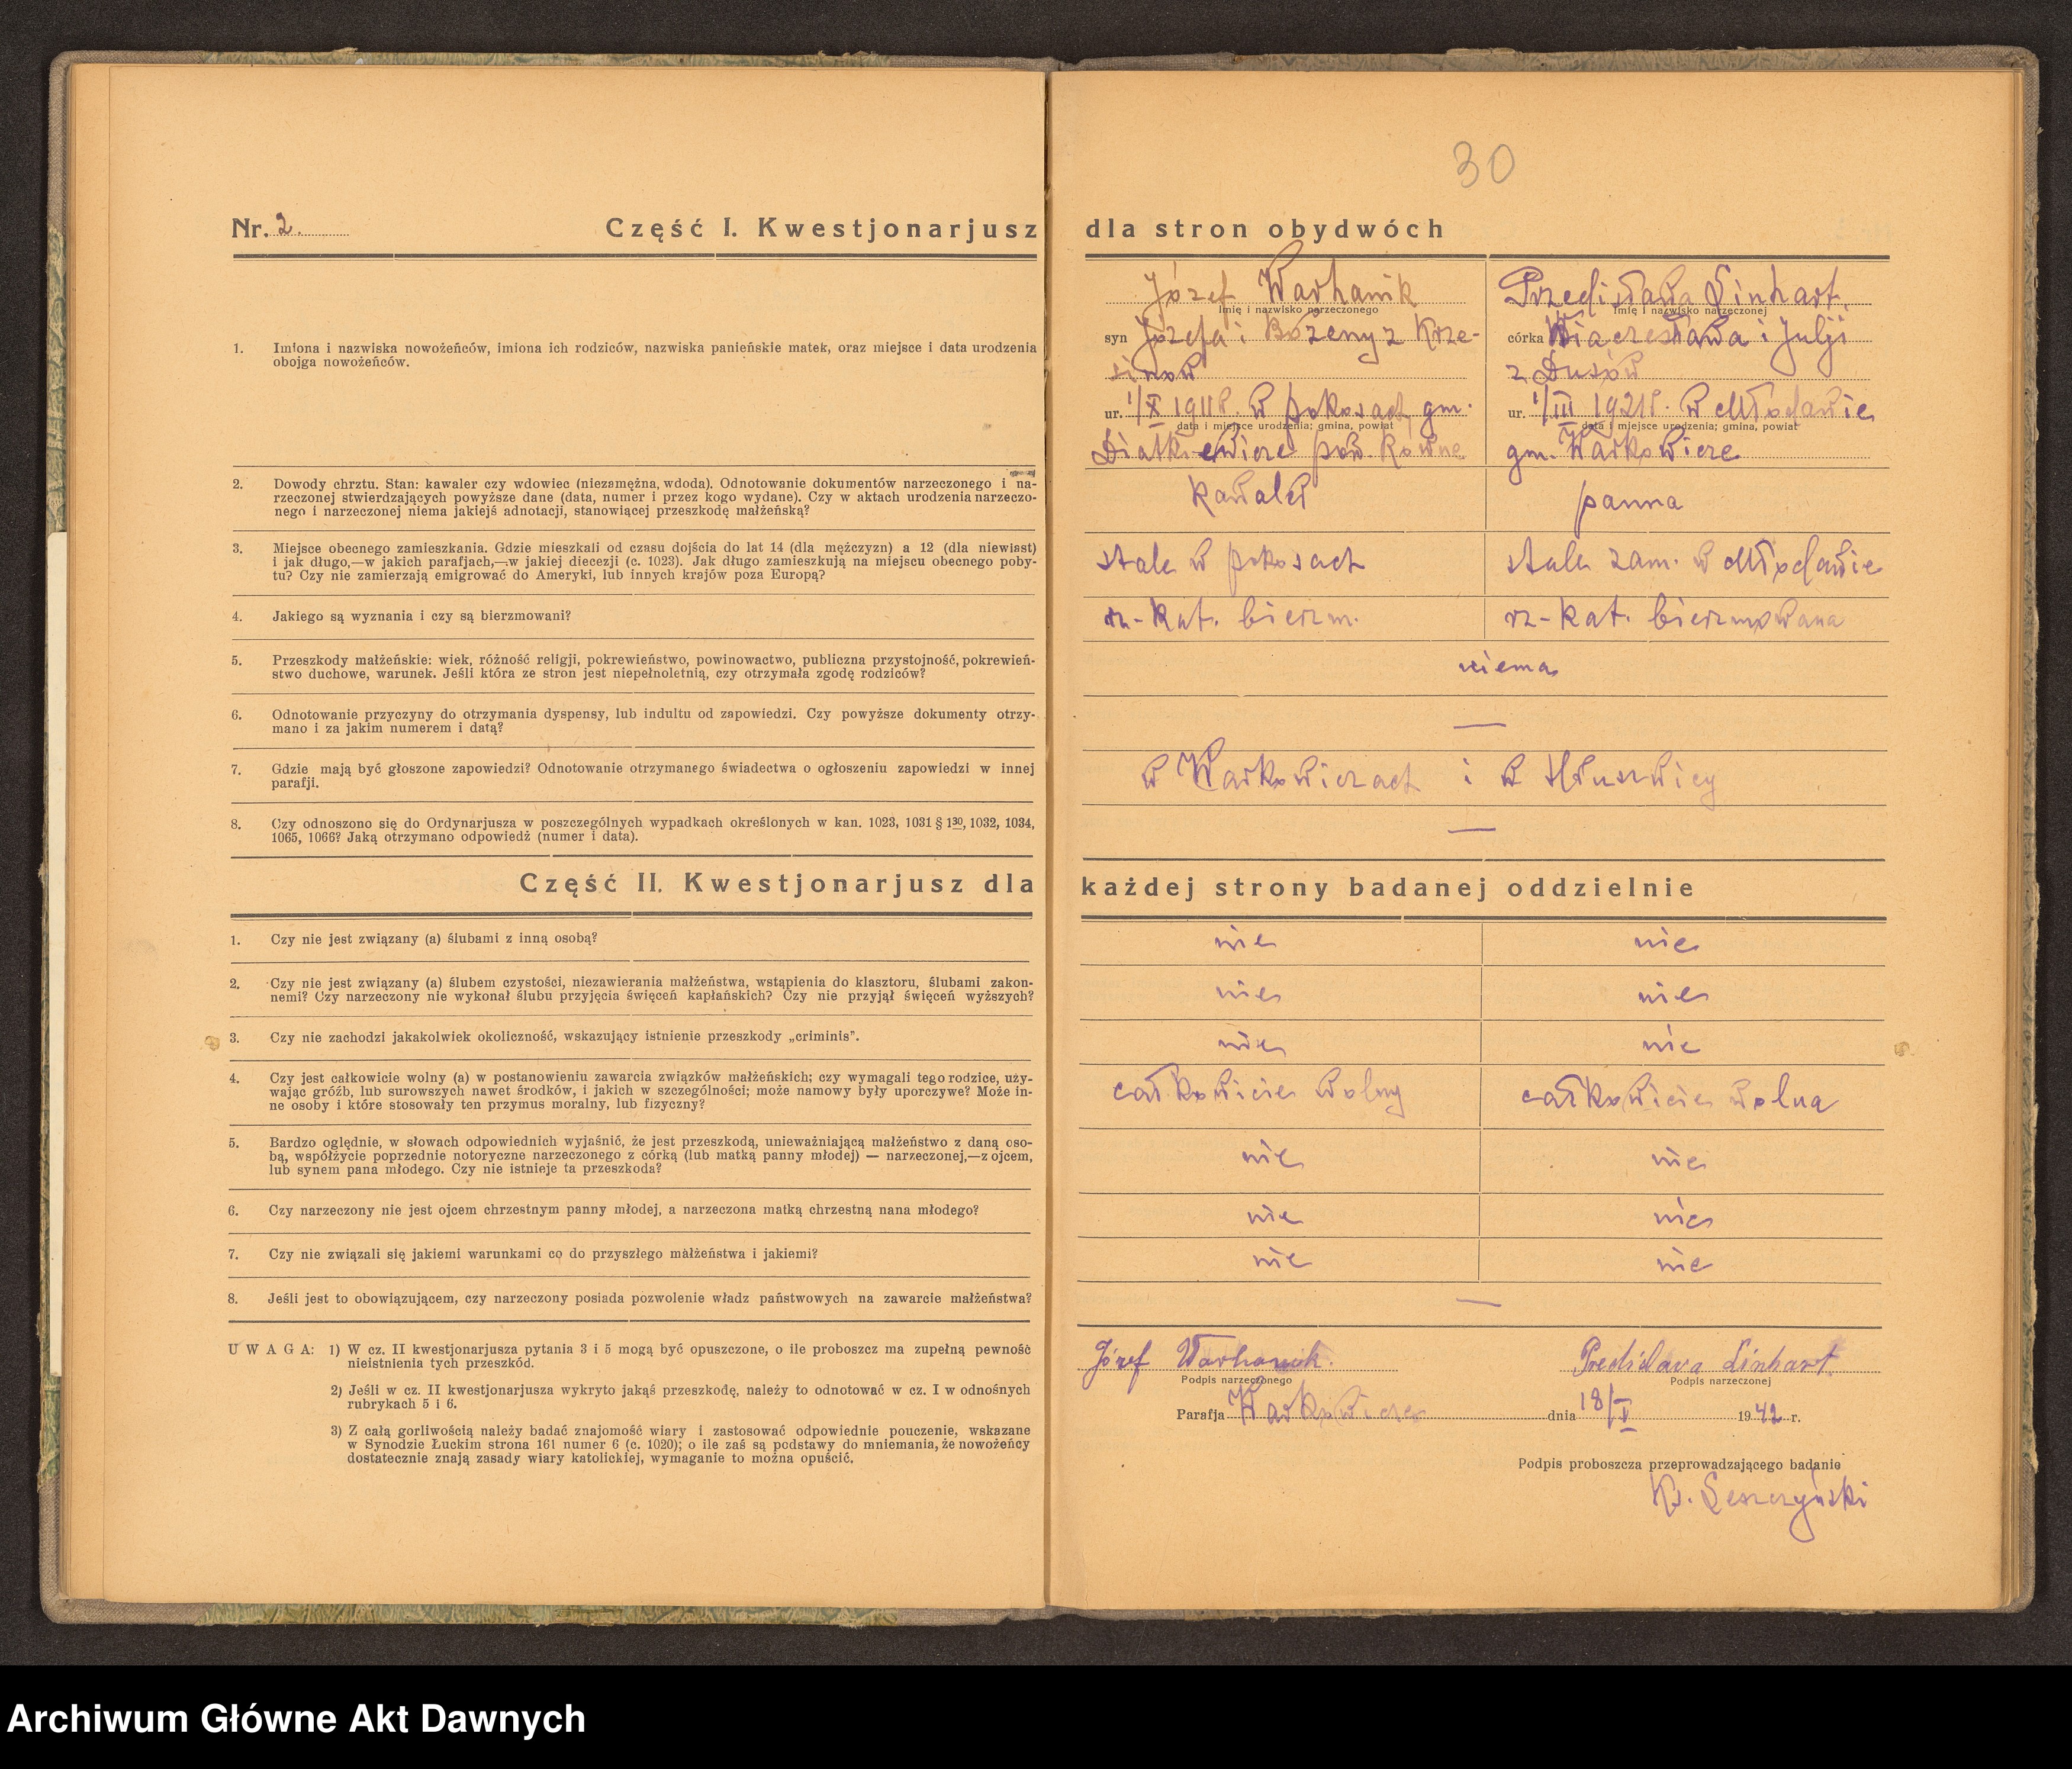 30
Nr. 2.
Część I. Kwestjonarjusz dla stron obydwóch
1. Imiona i nazwiska nowożeńców, imiona ich rodziców, nazwiska panieńskie matek, oraz miejsce i data urodzenia
obojga nowożeńców.
Józef Warhanik
imię i nazwisko narzeczonego
syn Józefa i Bożeny z Krze-
sinów
ur. 1/X 1911 r. w Pokosach, gm.
data i miejsce urodzenia; gmina, powiat
Diatkiewicze pow. Równe
Przedisława Linhart.
imię i nazwisko narzeczonej
córka Wiaczesława i Julji
z Dusów
ur. 1/III 1921 r. w Młodawie
data i miejsce urodzenia; gmina, powiat
gm. Warkowicze
2. Dowody chrztu. Stan: kawaler czy wdowiec (niezamężna, wdoda). Odnotowanie dokumentów narzeczonego i na-
rzeczonej stwierdzających powyższe dane (data, numer i przez kogo wydane). Czy w aktach urodzenia narzeczo-
nego i narzeczonej niema jakiejś adnotacji, stanowiącej przeszkodę małżeńską?
kawaler
panna
3. Miejsce obecnego zamieszkania. Gdzie mieszkali od czasu dojścia do lat 14 (dla mężczyzn) a 12 (dla niewiast)
i jak długo,—w jakich parafjach,—w jakiej diecezji (c. 1023). Jak długo zamieszkują na miejscu obecnego poby-
tu? Czy nie zamierzają emigrować do Ameryki, lub innych krajów poza Europą?
stale w Pokosach
stale zam. w Młodawie
4. Jakiego są wyznania i czy są bierzmowani?
rz-kat. bierzm.
rz-kat. bierzmowana
5. Przeszkody małżeńskie: wiek, różność religji, pokrewieństwo, powinowactwo, publiczna przystojność, pokrewień-
stwo duchowe, warunek. Jeśli która ze stron jest niepełnoletnią, czy otrzymała zgodę rodziców?
niema
6. Odnotowanie przyczyny do otrzymania dyspensy, lub indultu od zapowiedzi. Czy powyższe dokumenty otrzy-
mano i za jakim numerem i datą?
—
7. Gdzie mają być głoszone zapowiedzi? Odnotowanie otrzymanego świadectwa o ogłoszeniu zapowiedzi w innej
parafji.
w Warkowiczach i w Hłuszwicy
8. Czy odnoszono się do Ordynarjusza w poszczególnych wypadkach określonych w kan. 1023, 1031 § 1³⁰, 1032, 1034,
1065, 1066? Jaką otrzymano odpowiedź (numer i data).
—
Część II. Kwestjonarjusz dla każdej strony badanej oddzielnie
1. Czy nie jest związany (a) ślubami z inną osobą?
nie
nie
2. Czy nie jest związany (a) ślubem czystości, niezawierania małżeństwa, wstąpienia do klasztoru, ślubami zakon-
nemi? Czy narzeczony nie wykonał ślubu przyjęcia święceń kapłańskich? Czy nie przyjął święceń wyższych?
nie
nie
3. Czy nie zachodzi jakakolwiek okoliczność, wskazujący istnienie przeszkody „criminis”.
nie
nie
4. Czy jest całkowicie wolny (a) w postanowieniu zawarcia związków małżeńskich; czy wymagali tego rodzice, uży-
wając gróźb, lub surowszych nawet środków, i jakich w szczególności; może namowy były uporczywe? Może in-
ne osoby i które stosowały ten przymus moralny, lub fizyczny?
całkowicie wolny
całkowicie wolna
5. Bardzo oględnie, w słowach odpowiednich wyjaśnić, że jest przeszkodą, unieważniającą małżeństwo z daną oso-
bą, współżycie poprzednie notoryczne narzeczonego z córką (lub matką panny młodej) — narzeczonej,—z ojcem,
lub synem pana młodego. Czy nie istnieje ta przeszkoda?
nie
nie
6. Czy narzeczony nie jest ojcem chrzestnym panny młodej, a narzeczona matką chrzestną nana młodego?
nie
nie
7. Czy nie związali się jakiemi warunkami co do przyszłego małżeństwa i jakiemi?
nie
nie
8. Jeśli jest to obowiązującem, czy narzeczony posiada pozwolenie władz państwowych na zawarcie małżeństwa?
—
UWAGA: 1) W cz. II kwestjonarjusza pytania 3 i 5 mogą być opuszczone, o ile proboszcz ma zupełną pewność
nieistnienia tych przeszkód.
2) Jeśli w cz. II kwestjonarjusza wykryto jakąś przeszkodę, należy to odnotować w cz. I w odnośnych
rubrykach 5 i 6.
3) Z całą gorliwością należy badać znajomość wiary i zastosować odpowiednie pouczenie, wskazane
w Synodzie Łuckim strona 161 numer 6 (c. 1020); o ile zaś są podstawy do mniemania, że nowożeńcy
dostatecznie znają zasady wiary katolickiej, wymaganie to można opuścić.
Józef Warhanik.
Podpis narzeczonego
Predislava Linhart.
Podpis narzeczonej
Parafja Warkowicze dnia 18/V 1942 r.
Podpis proboszcza przeprowadzającego badanie
Ks. Leszczyński
Archiwum Główne Akt Dawnych